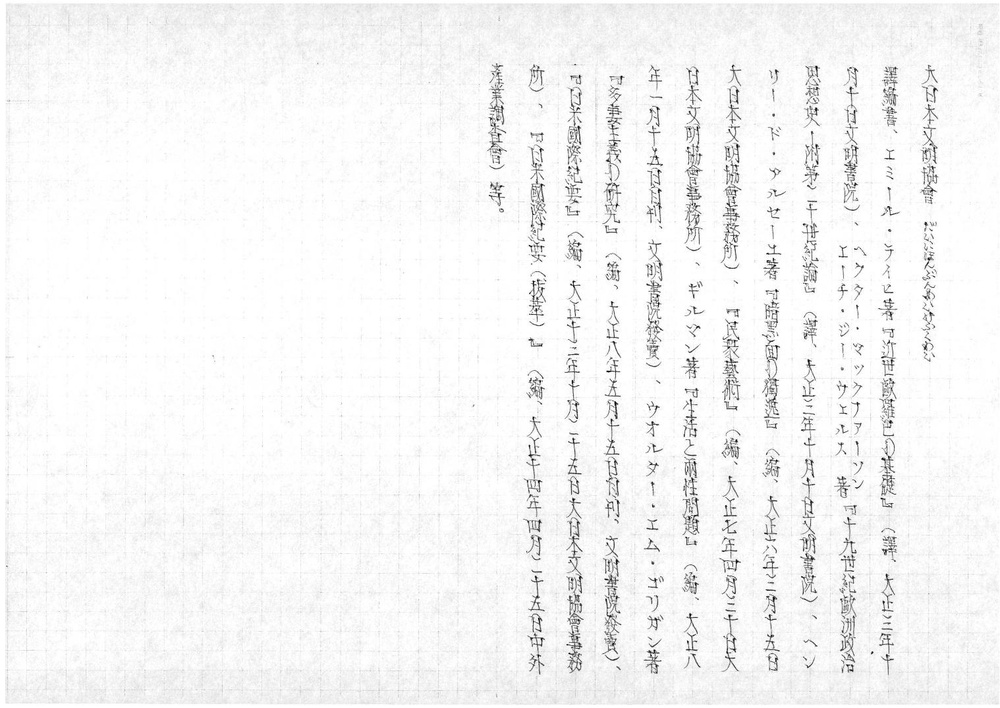 大日本文明協會 だいにほんぶんめいけふくわい
譯編書、エミール・ライヒ著『近世歐羅巴の基礎』（譯、大正三年十
月十日文明書院）、ヘクター・マックファーソン エーチ・ジー・ウェルス 著『十九世紀歐洲政治
思想史 附第二十世紀論』（譯、大正三年十月十日文明書院）、ヘン
リー・ド・アルセー土著『暗黑面の獨逸』（編、大正六年三月十五日
大日本文明協會事務所）、『民衆藝術』（編、大正七年四月三十日大
日本文明協會事務所）、ギルマン著『生活と兩性問題』（編、大正八
年一月十五日刊、文明書院發賣）、ウオルター・エム・ガリガン著
『多妻主義の研究』（編、大正八年五月十五日刊、文明書院發賣）、
『日米國際紀要』（編、大正十二年十月二十五日大日本文明協會事務
所）、『日米國際紀要（抜萃）』（編、大正十四年四月二十五日中外
產業調查會）等。